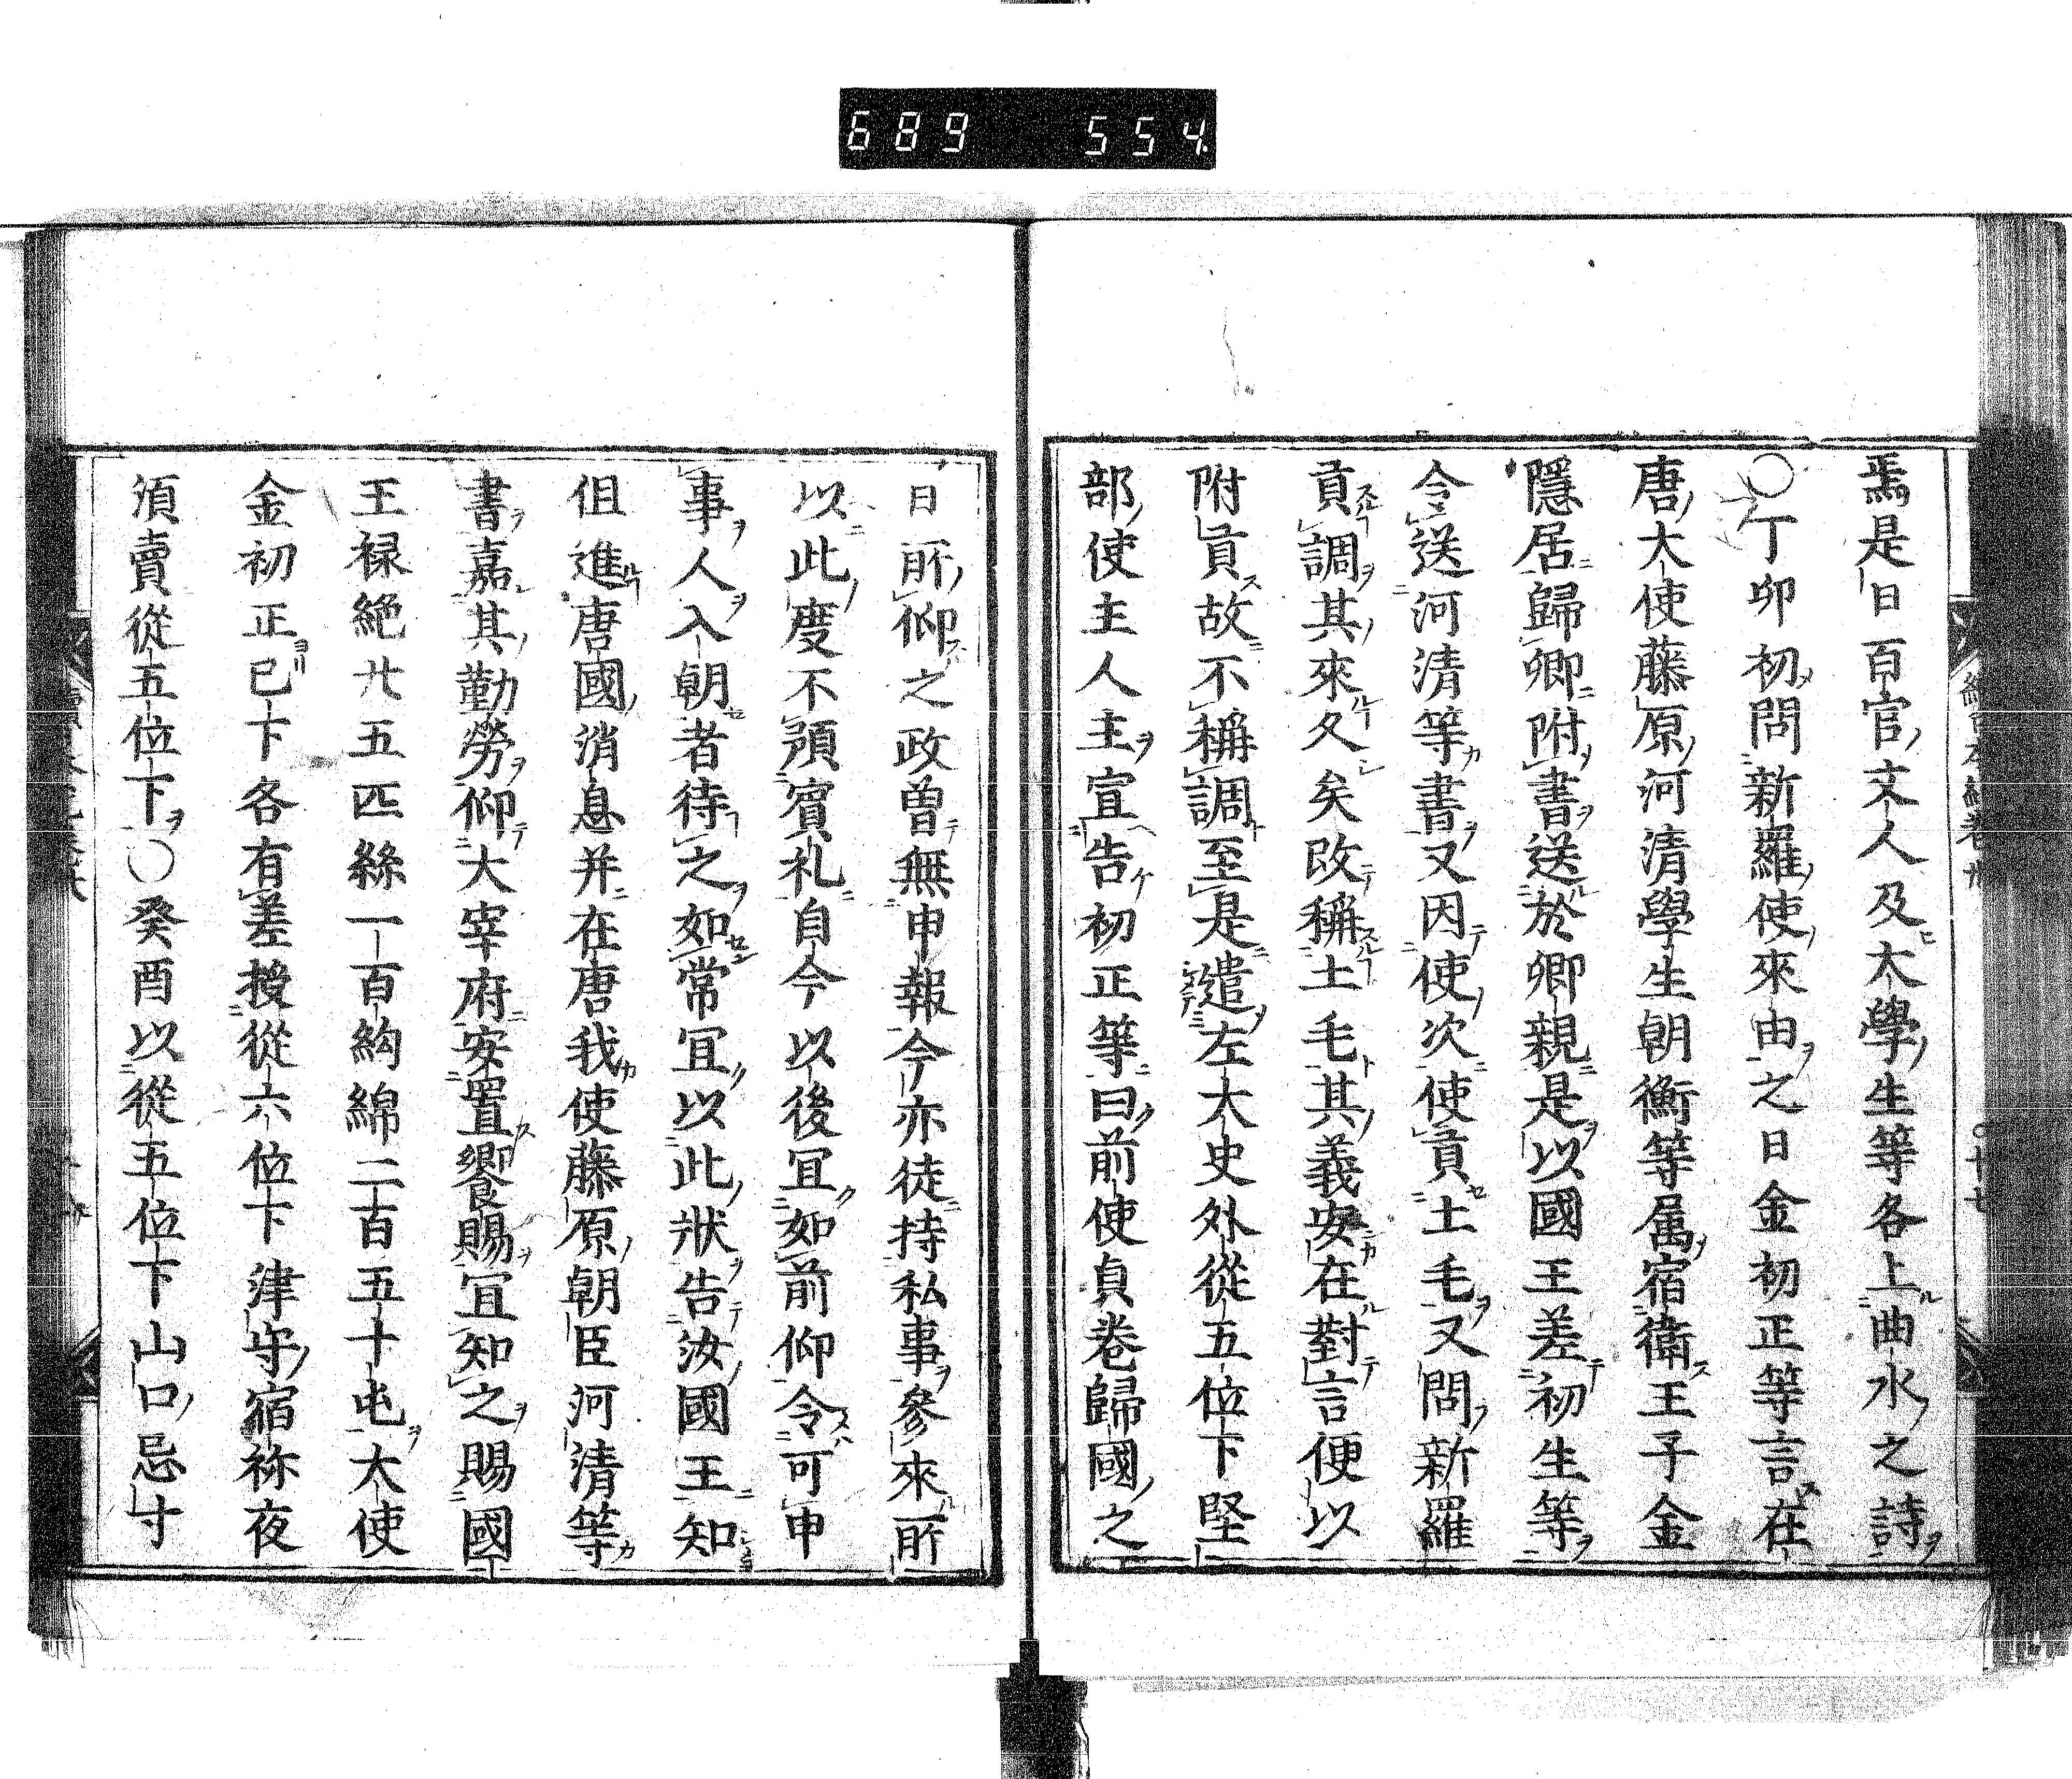 689 554
焉是日百官文人及大學生等各上曲水之詩
○丁卯初問新羅使來由之日金初正等言在
唐大使藤原河清學生朝衡等属宿衛王子金
隱居歸卿附書送於卿親是以國王差初生等
令送河清等書又因使次使貢土毛又問新羅
貢調其來久矣改稱土毛其義安在對言便以
附貢故不稱調至是遣左大史外從五位下堅
部使主人主宣告初正等曰前使貞卷歸國之
日所仰之政曽無申報今亦徒持私事參來所
以此度不預賓礼自今以後冝如前仰令可申
事人入朝者待之如常冝以此狀告汝國王知
但進唐國消息并在唐我使藤原朝臣河清等
書嘉其勤勞仰大宰府安置饗賜冝知之賜國
王禄絁廿五匹絲一百絇綿二百五十屯大使
金初正已下各有差授從六位下津守宿祢夜
湏賣從五位下○癸酉以從五位下山口忌寸